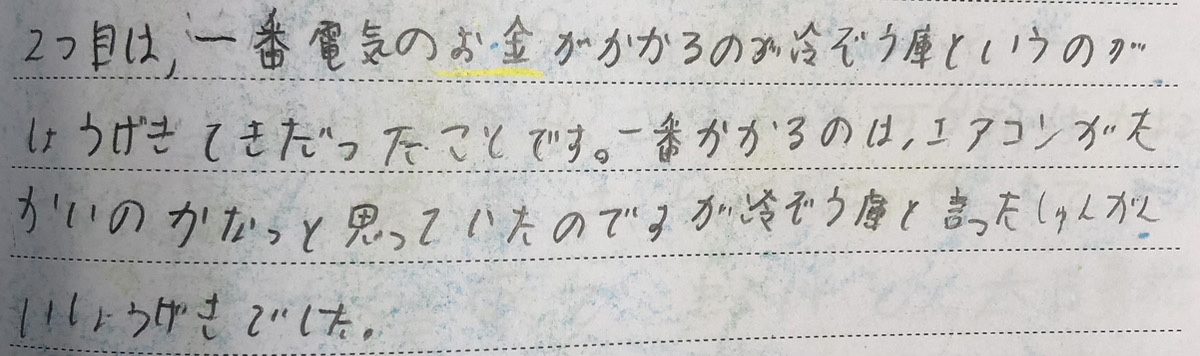 2つ目は,一番電気のお金がかかるのが冷ぞう庫というのが
しょうげきてきだったことです。一番かかるのは,エアコンがた
かいのかなっと思っていたのですが冷ぞう庫と言ったしゅんかん
いしょうげきでした。